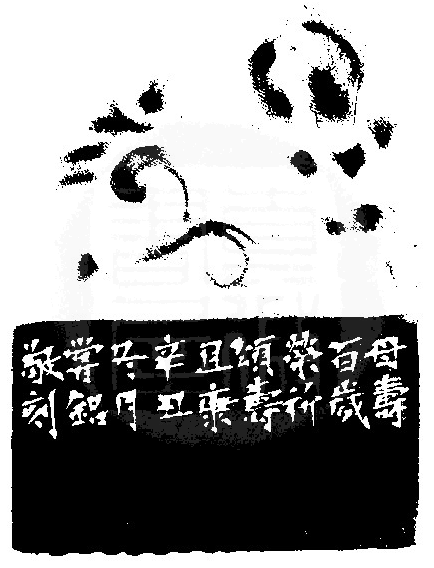 母壽
百歲
榮祈
頌壽
且
辛丑
冬月
嘗銘
敬刻